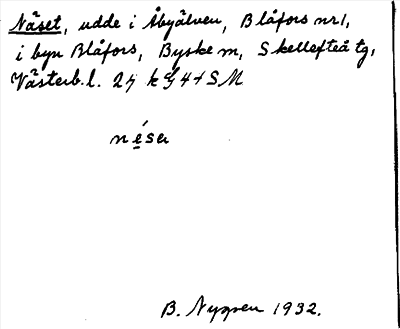 Näset, udde i Åbyälven, Blåfors nr 1,
i byn Blåfors, Byske m, Skellefteå tg,
Västerb. l. 2j k S
B. Nygren 1932.